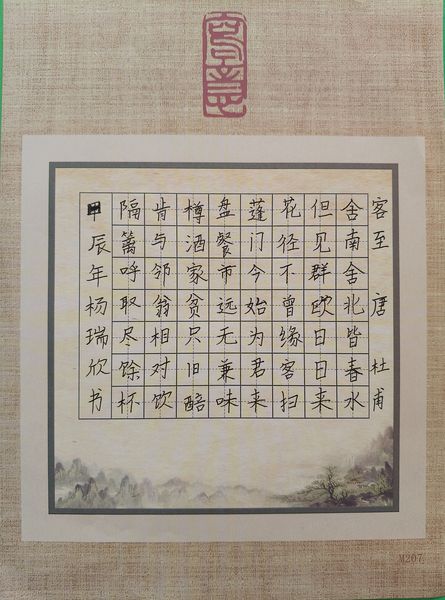 客至 唐 杜甫
舍南舍北皆春水
但见群欧日日来
花径不曾缘客扫
蓬门今始为君来
盘餐市远无兼味
樽酒家贫只旧醅
肯与邻翁相对饮
隔篱呼取尽馀杯
甲辰年杨瑞欣书
M207